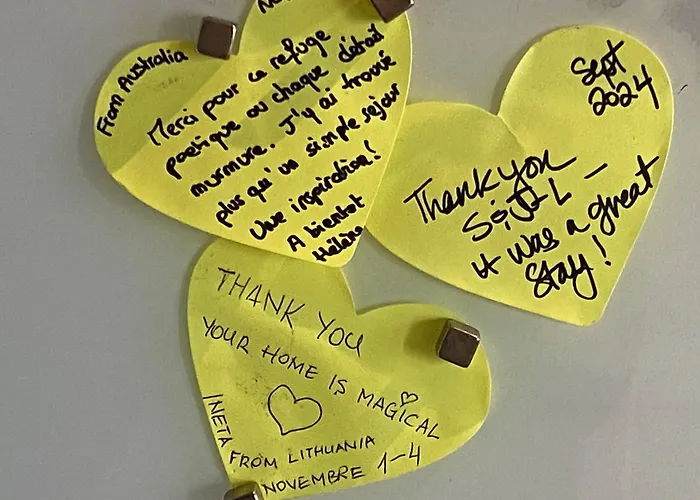 From Australia
Merci pour ce refuge
poetique ou chaque détail
murmure. J'y ai trouvé
plus qu'un simple sejour
Une inspiration!
A bientot
Hélène
Sept
2024
Thank you
It was a great
Stay!
THANK YOU
YOUR HOME IS MAGICAL
INETA
FROM LITHUANIA
NOVEMBRE 1-4